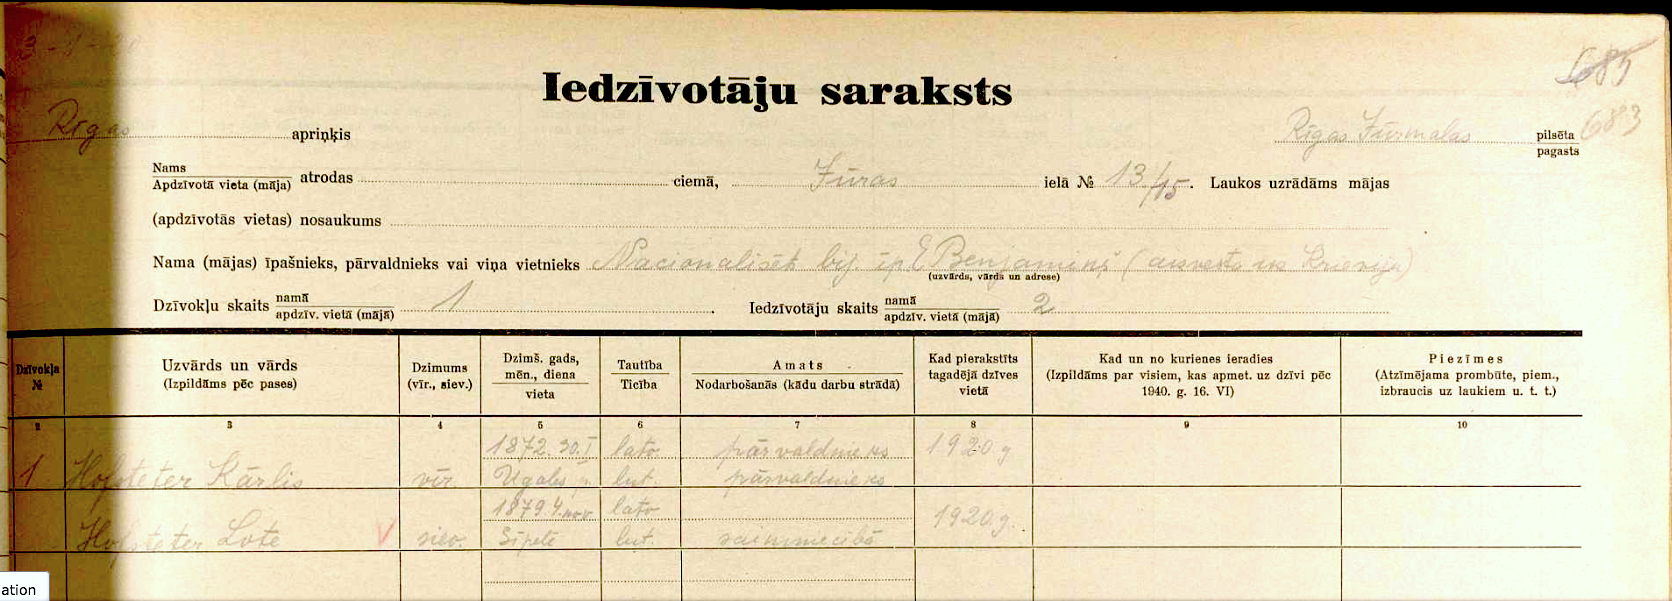 685
Iedzīvotāju saraksts
Rīgas apriņķis
Rīgas Jūrmalas pilsēta 683
pagasts
Nams
Apdzīvotā vieta (māja) atrodas ciemā, Jūras ielā № 13/15. Laukos uzrādāms mājas
(apdzīvotās vietas) nosaukums
Nama (mājas) īpašnieks, pārvaldnieks vai viņa vietnieks Nacionalisēts bij. īp. E Benjamiņš (aizvests uz Krieviju)
(uzvārds, vārds un adrese)
Dzīvokļu skaits namā 1. Iedzīvotāju skaits namā 2
apdzīv. vietā (mājā) apdzīv. vietā (mājā)
Dzīvokļa № Uzvārds un vārds (Izpildāms pēc pases) Dzimums (vīr., siev.) Dzimš. gads, mēn., diena vieta Tautība Ticība Amats Nodarbošanās (kādu darbu strādā) Kad pierakstīts tagadējā dzīves vietā Kad un no kurienes ieradies (Izpildāms par visiem, kas apmet. uz dzīvi pēc 1940. g. 16. VI) Piezīmes (Atzīmējama prombūte, piem., izbraucis uz laukiem u. t. t.)
2 3 4 5 6 7 8 9 10
1872. 30. I latv. pārvaldnieks 1920 g
1 Hofsteter Kārlis vīr. Ugales p. lut. pārvaldnieks
1879. 4. nov. latv. 1920 g.
Hofsteter Lote V siev. Sīpele lut. saimniecībā
ation